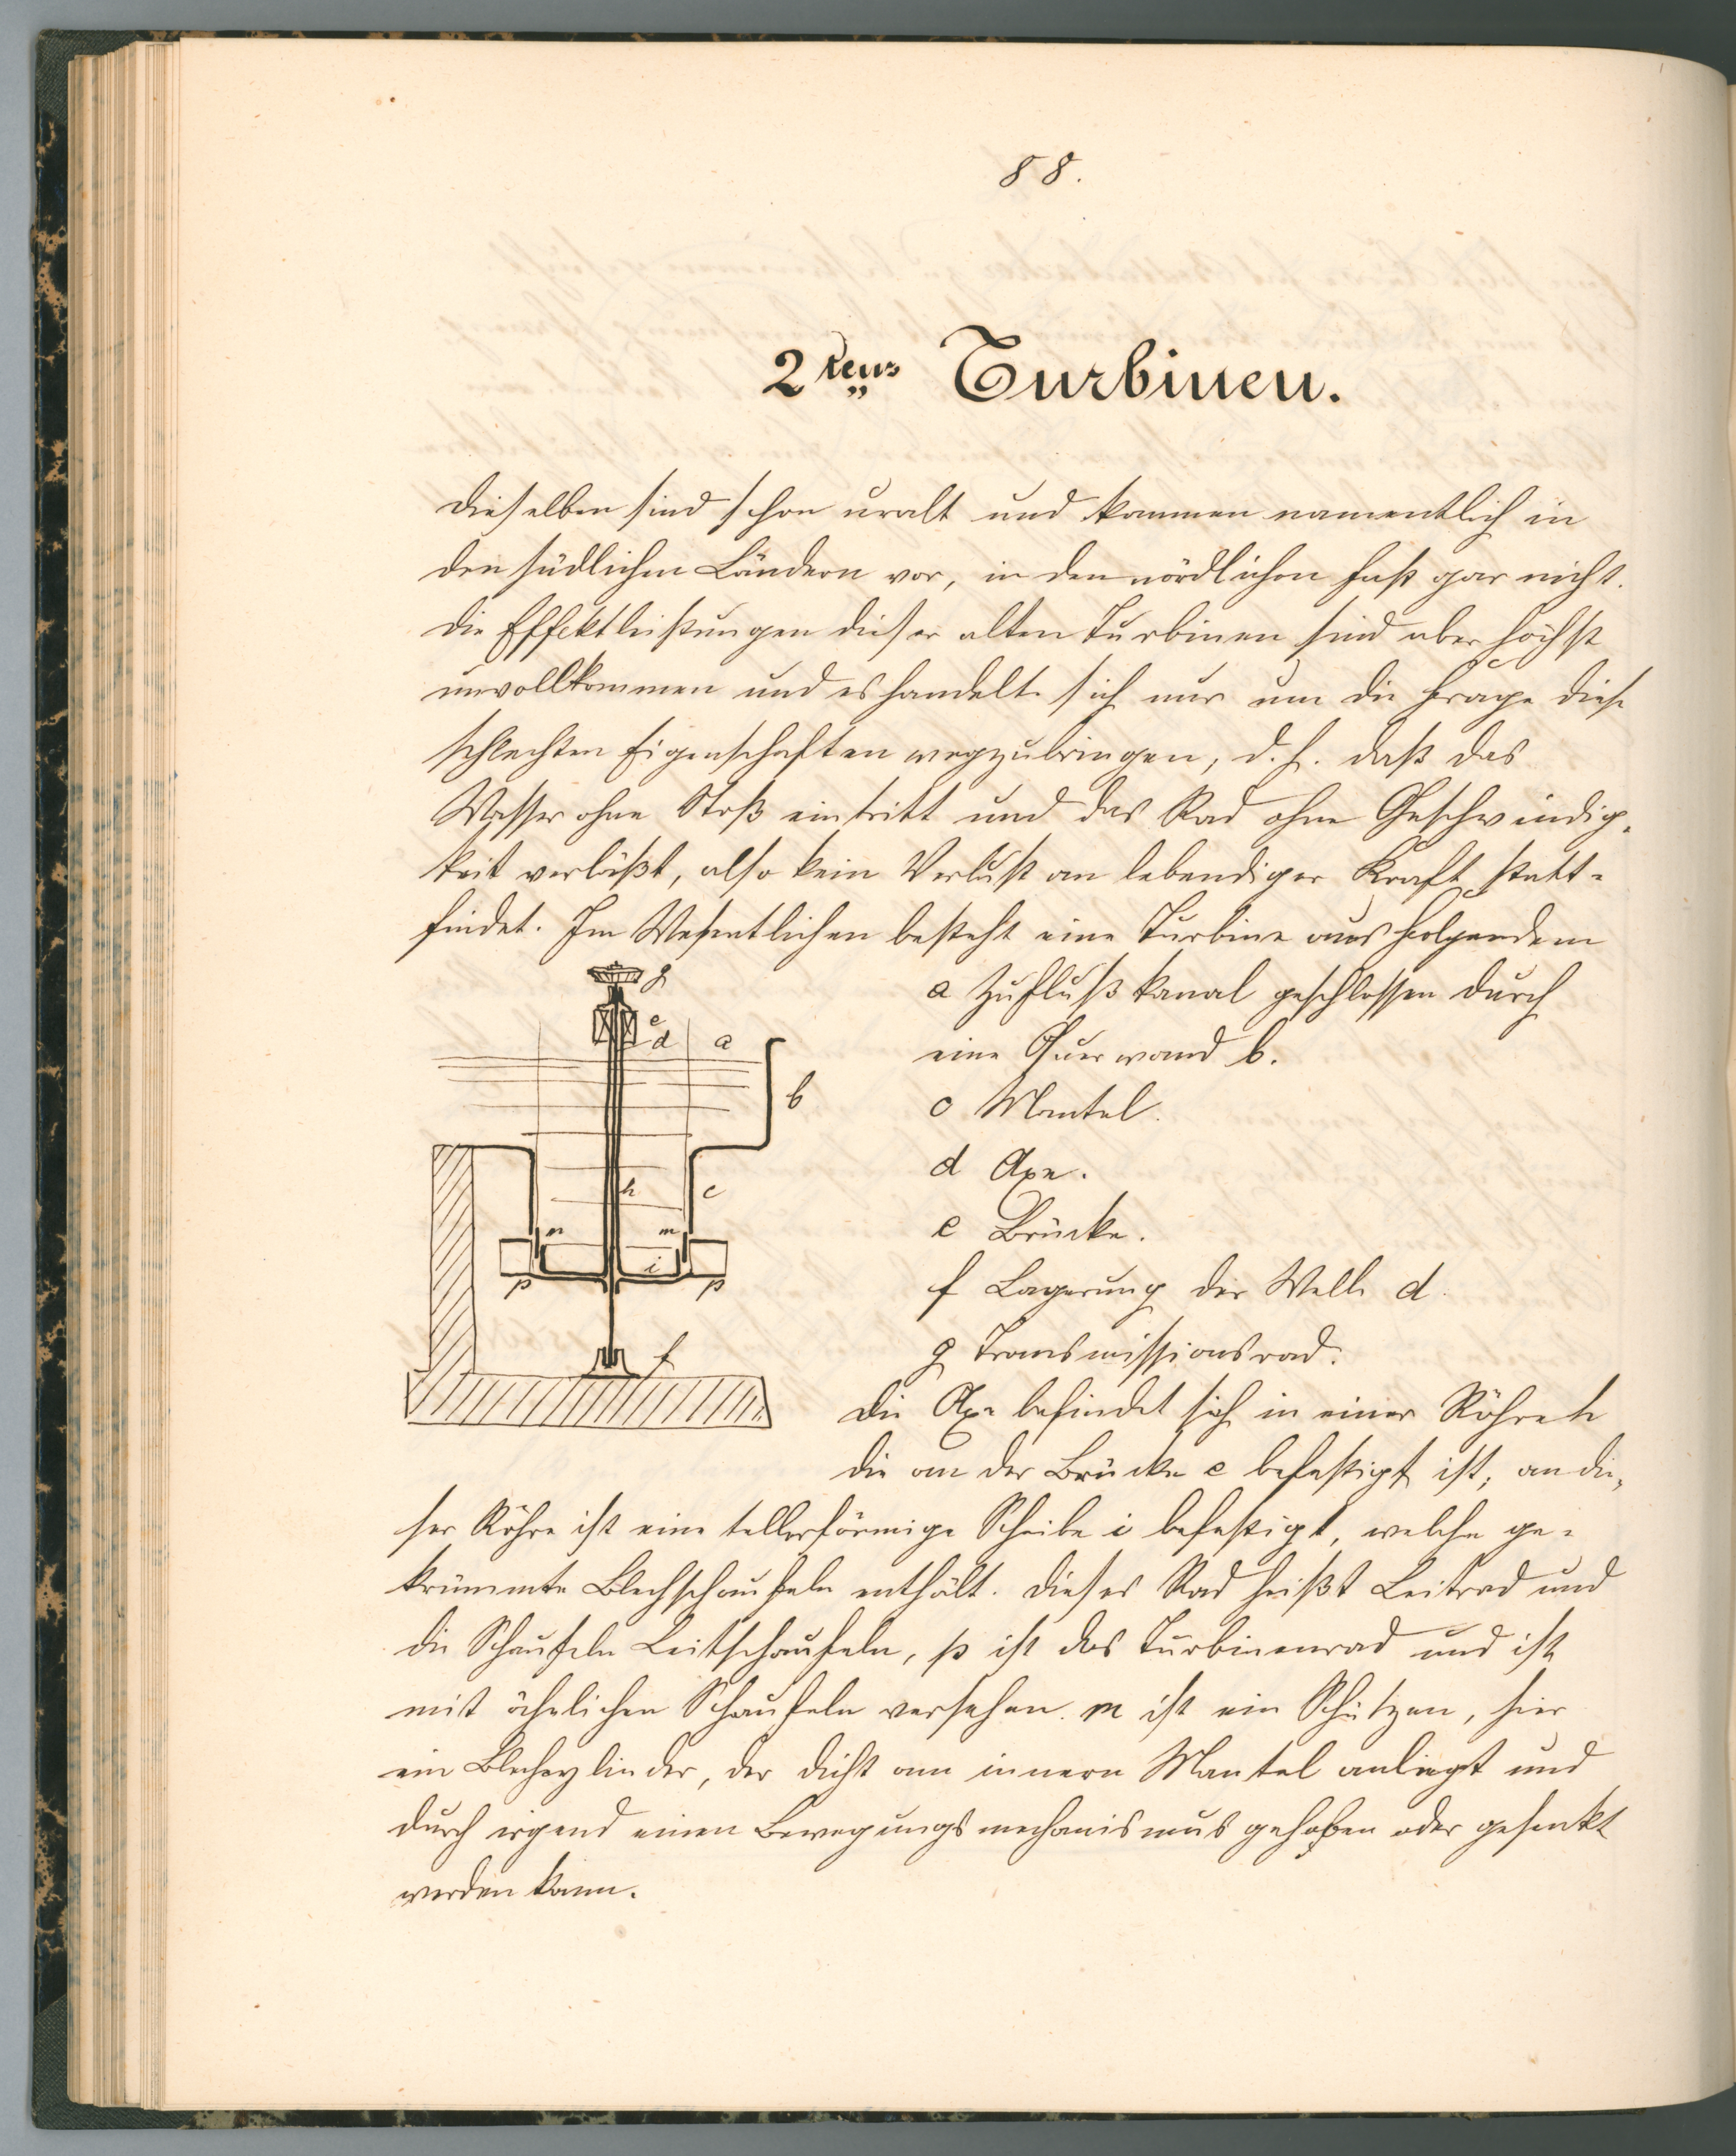 88.
2tens Turbinen.
Dieselben sind schon uralt und kommen namentlich in
den südlichen Ländern vor, in den nördlichen fast gar nicht.
Die Effektleistungen dieser alten Turbinen sind aber höchst
unvollkommen und es handelte sich nur um die Frage diese
schlechten Eigenschaften wegzubringen, d. h. daß das
Wasser ohne Stoß eintritt und das Rad ohne Geschwindig-
keit verläßt, also kein Verlust an lebendiger Kraft statt-
findet. Im Wesentlichen besteht eine Turbine aus Folgendem
a Zuflußkanal geschlossen durch
eine Querwand b.
c Mantel.
d Axe.
e Brücke.
f Lagerung der Welle d.
g Transmissionsrad.
Die Axe befindet sich in einer Röhre h
die an der Brücke e befestigt ist; an die-
ser Röhre ist eine tellerförmige Scheibe i befestigt, welche ge-
krümmte Blechschaufeln enthält. Dieses Rad heißt Leitrad und
die Schaufeln Leitschaufeln, p ist das Turbinenrad und ist
mit ähnlichen Schaufeln versehen. m ist ein Schützen, hier
ein Blechcylinder, der dicht am innern Mantel anliegt und
durch irgend einen Bewegungsmechanismus gehoben oder gesenkt
werden kann.
g
e
d
a
b
h
c
m
m
i
p
p
f